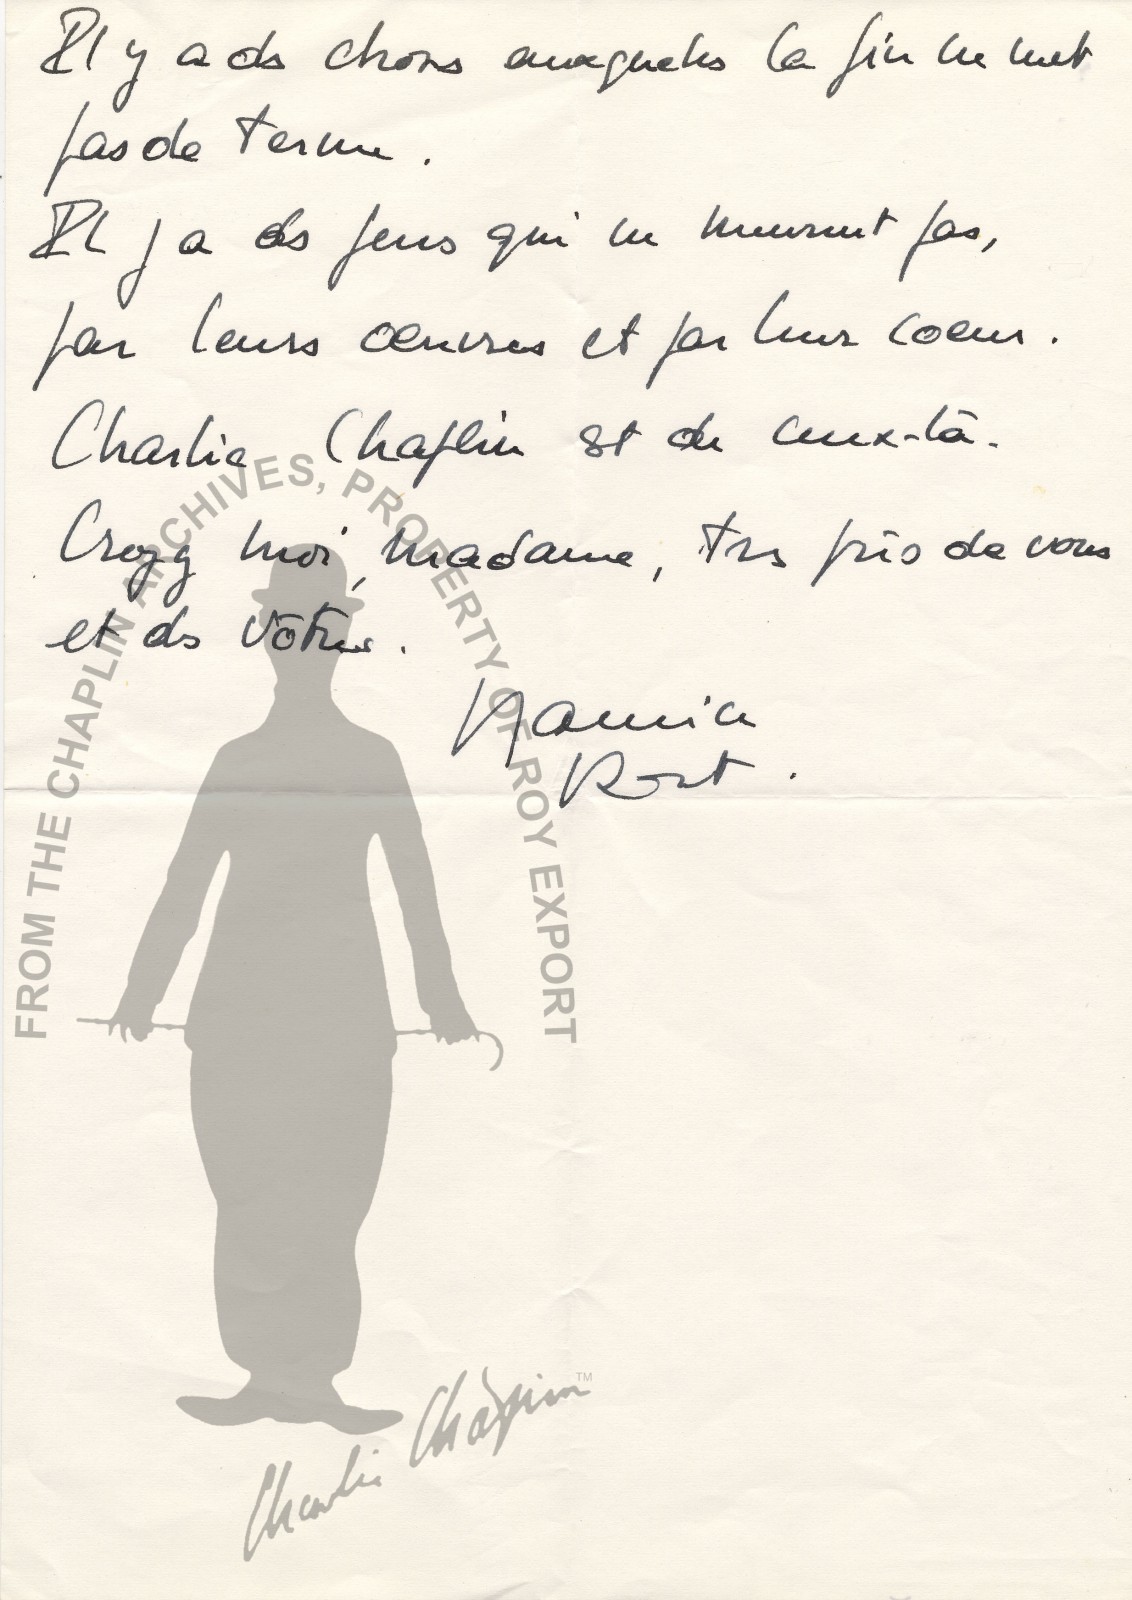 Il y a des choses auxquelles la fin ne met
pas de terme.
Il y a des gens qui ne meurent pas,
par leurs oeuvres et par leur coeur.
Charlie Chaplin est de ceux-là.
Croyez moi, madame, très près de vous
et des vôtres.
FROM THE CHAPLIN ARCHIVES, PROPERTY OF ROY EXPORT
Charlie Chaplin™